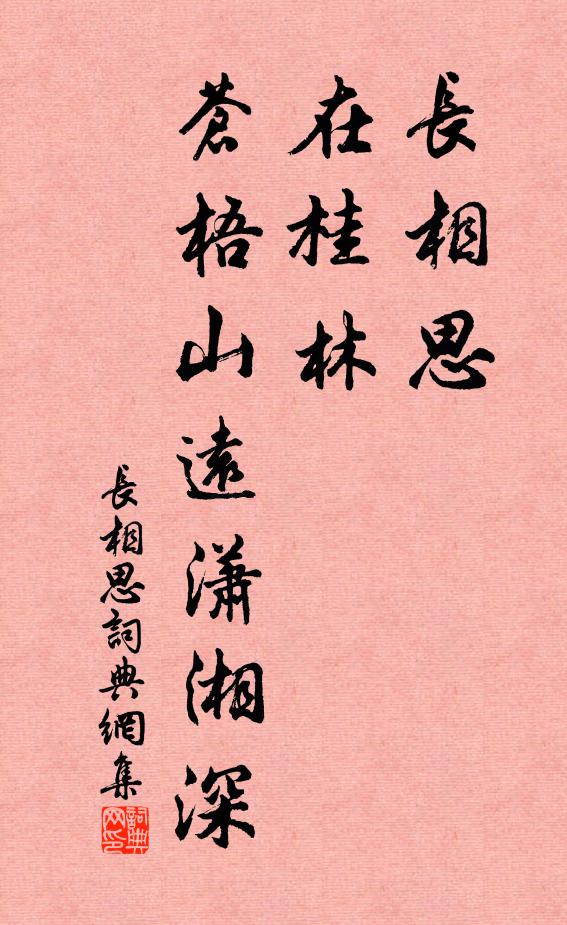 長相思
在桂林
蒼梧山遠瀟湘深
長相思詞典網集
詞典网印